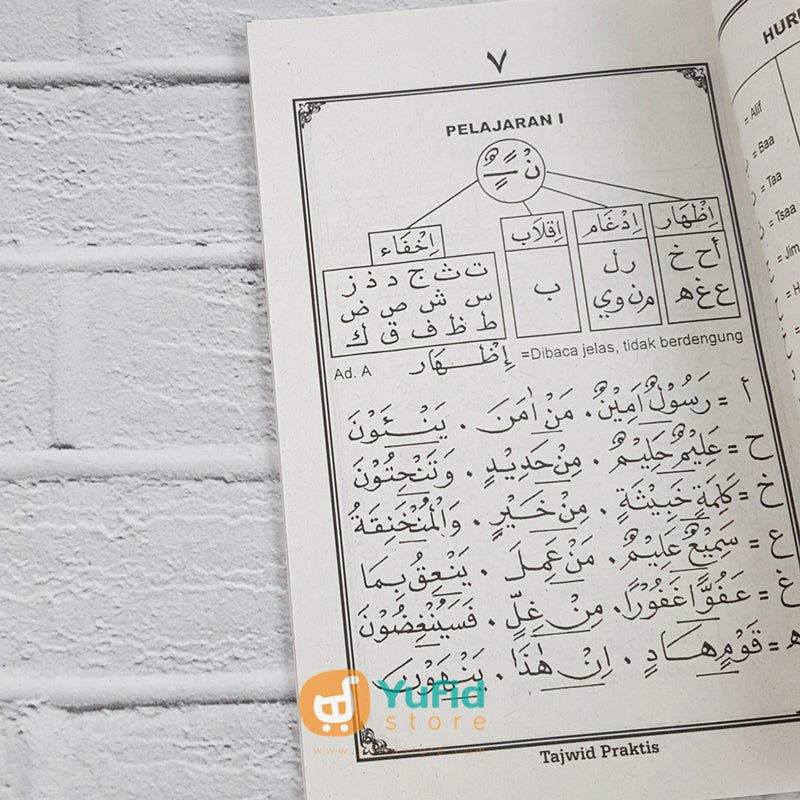 ٧
PELAJARAN I
نْ ـًـٍـٌ
اِظْهَار اِدْغَام اِقْلَاب اِخْفَاء
أ ح خ
ع غ ه
ر ل
م ن و ي
ب
ت ث ج د ذ ز
س ش ص ض
ط ظ ف ق ك
Ad. A اِظْـــهَار =Dibaca jelas, tidak berdengung
أ = رَسُوْلٌ اَمِيْنٌ . مَنْ اٰمَنَ . يَنْـــئَوْنَ
ح = عَلِيْمٌ حَلِيْمٌ . مِنْ حَدِيْدٍ . وَتَنْحِتُوْنَ
خ = كَلِمَةٍ خَبِيْثَةٍ . مِنْ خَيْرٍ . وَالْمُنْخَنِقَةُ
ع = سَمِيْعٌ عَلِيْمٌ . مَنْ عَمِلَ . يَنْعِقُ بِمَا
غ = عَفُوًّا غَفُوْرًا . مِنْ غِلٍّ . فَسَيُنْغِضُوْنَ
ه = قَوْمٍ هَـــادٍ . اِنْ هٰذَا . يَنْهَوْنَ
Tajwid Praktis
HURU
= Alif
= Baa
= Taa
= Tsaa
= Jim
= H
YuFid
store